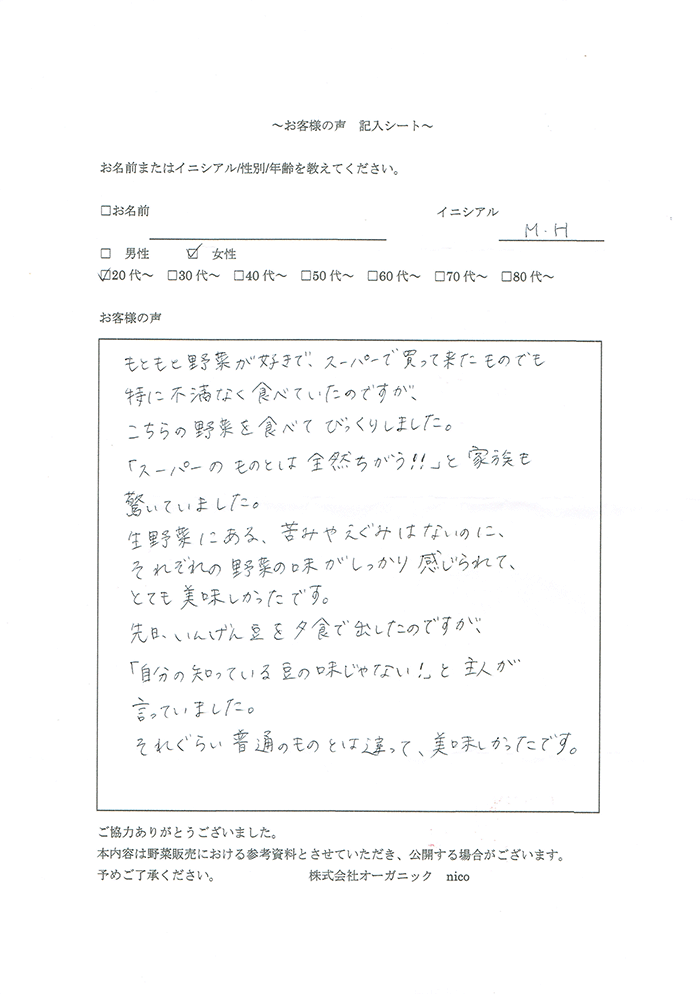 ～お客様の声　記入シート～
お名前またはイニシアル/性別/年齢を教えてください。
□お名前　イニシアル　M.H
□ 男性　☑ 女性
☑20代～　□30代～　□40代～　□50代～　□60代～　□70代～　□80代～
お客様の声
もともと野菜が好きで、スーパーで買って来たものでも
特に不満なく食べていたのですが、
こちらの野菜を食べてびっくりしました。
「スーパーのものとは全然ちがう!!」と家族も
驚いていました。
生野菜にある、苦みやえぐみはないのに、
それぞれの野菜の味がしっかり感じられて、
とても美味しかったです。
先日、いんげん豆を夕食で出したのですが、
「自分の知っている豆の味じゃない!」と主人が
言っていました。
それぐらい普通のものとは違って、美味しかったです。
ご協力ありがとうございました。
本内容は野菜販売における参考資料とさせていただき、公開する場合がございます。
予めご了承ください。　株式会社オーガニック　nico